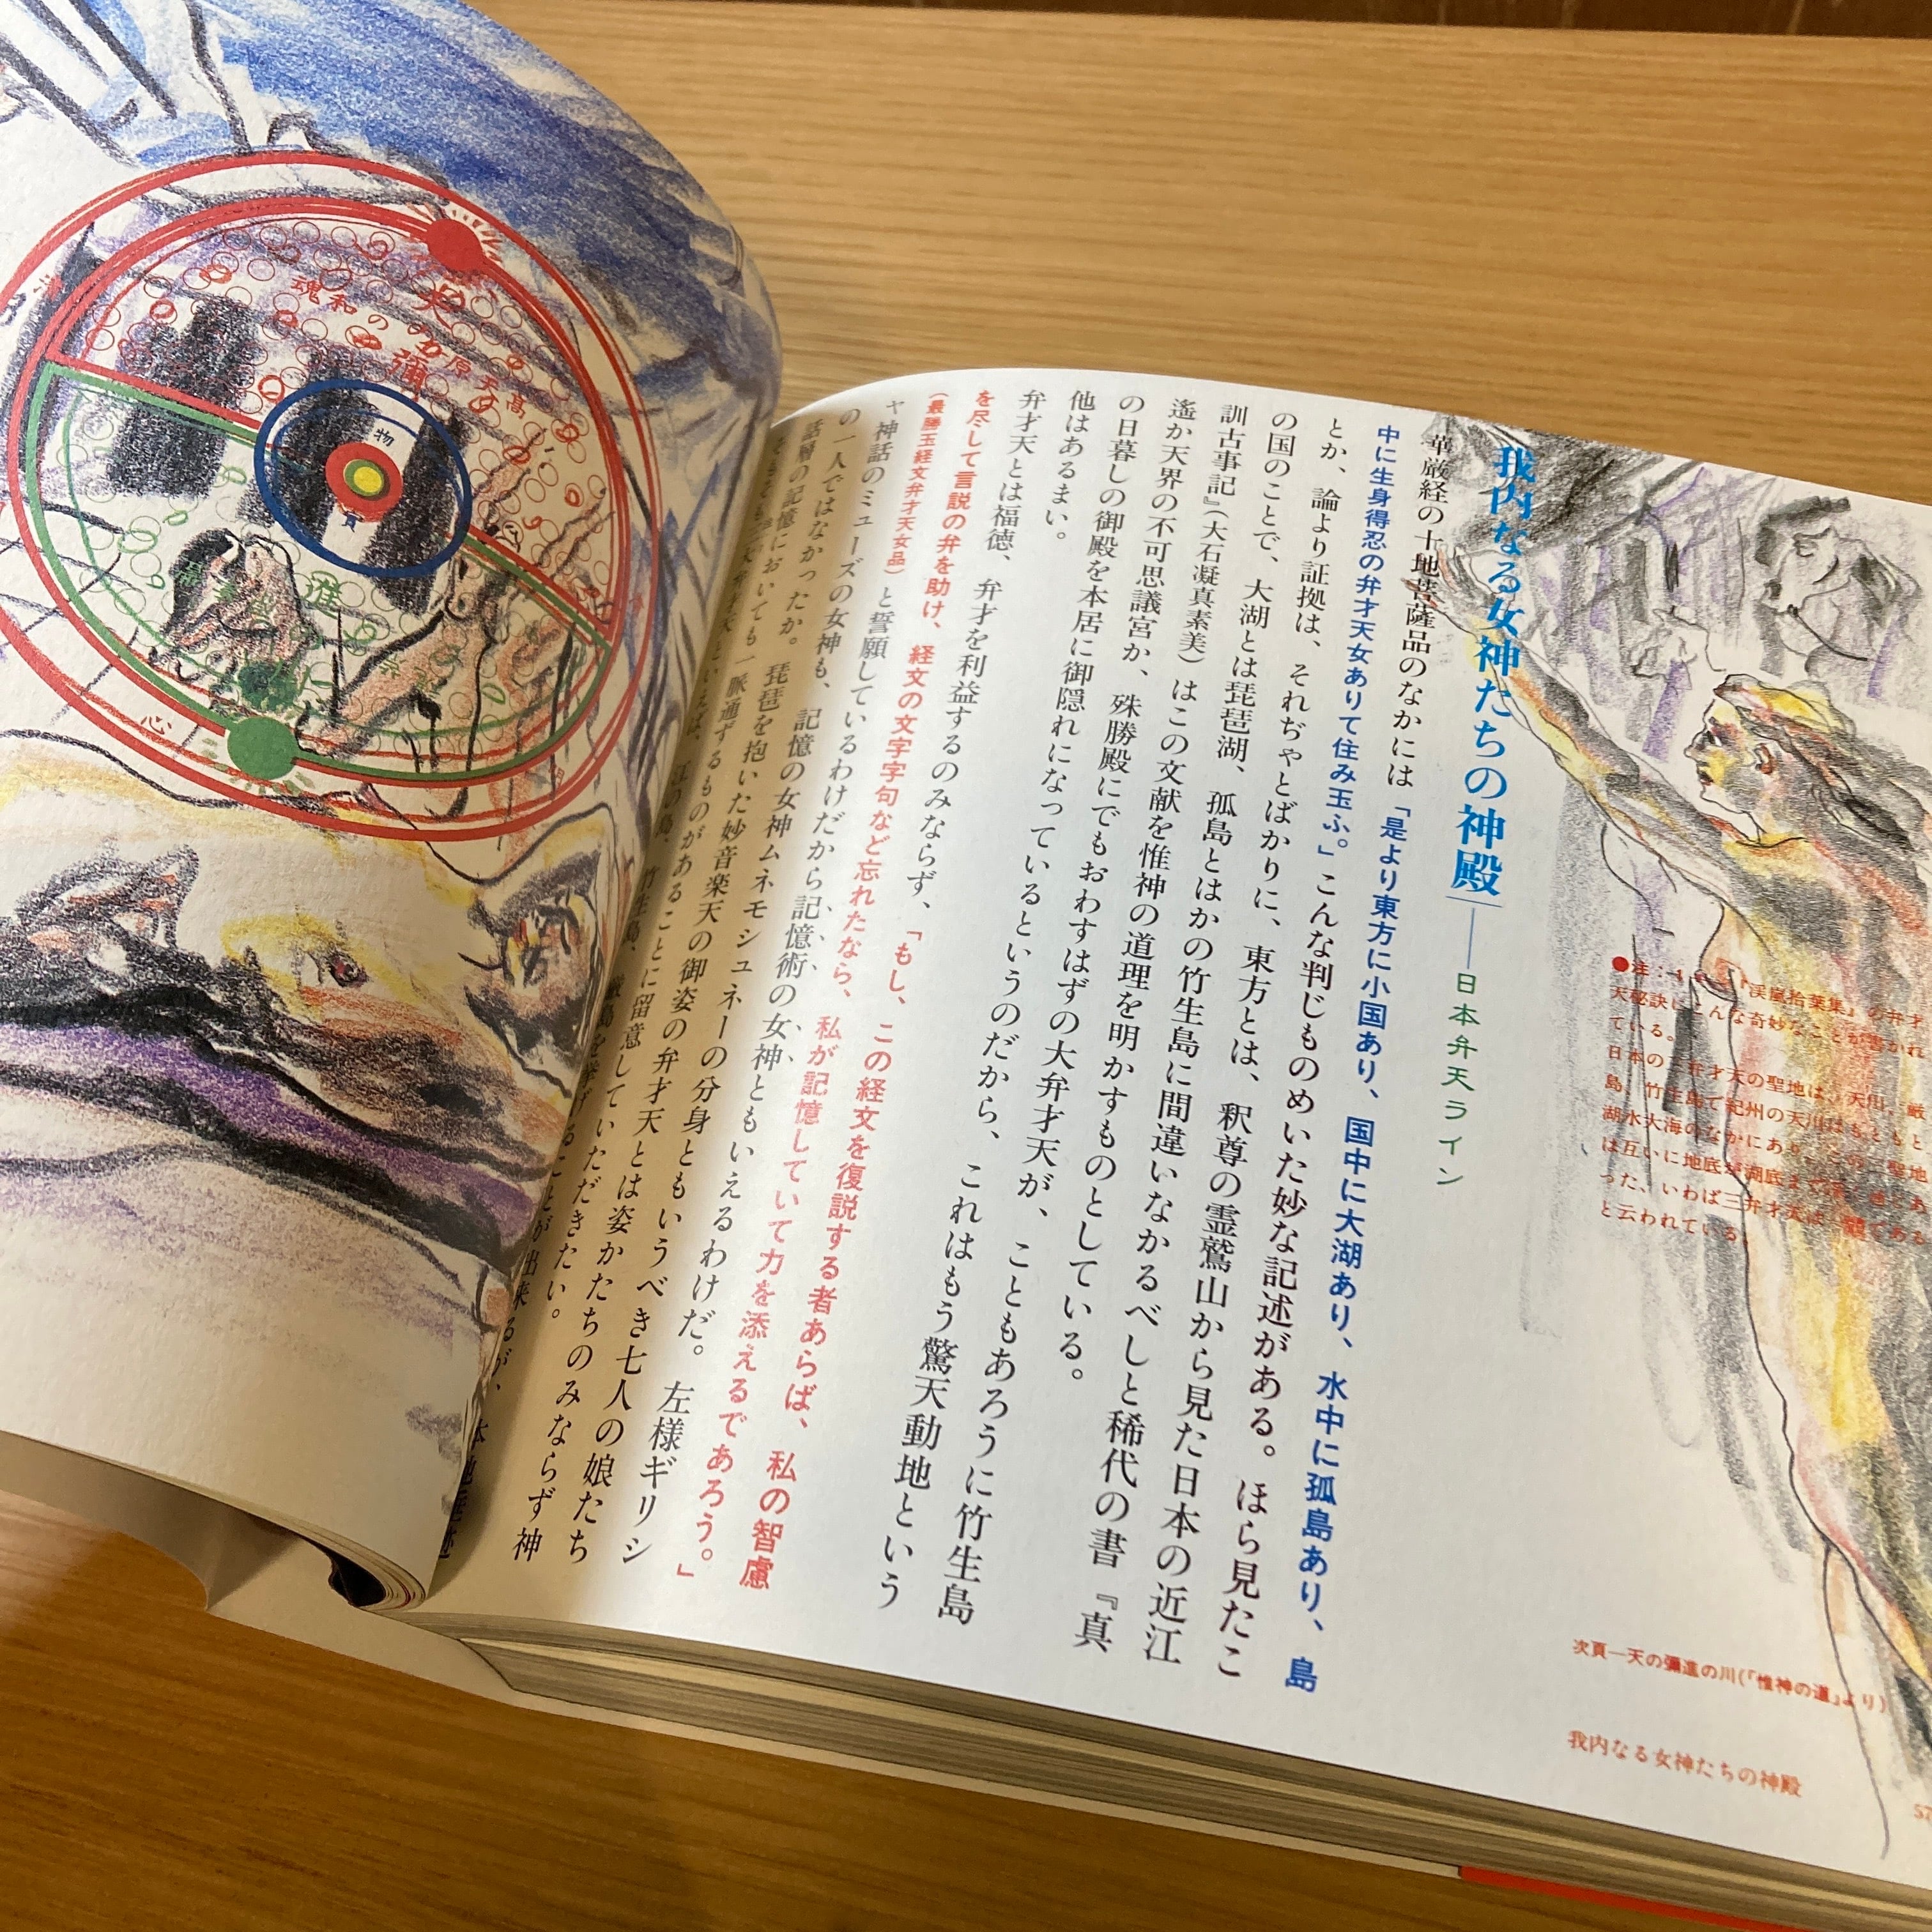 我内なる女神たちの神殿――日本弁天ライン
華厳経の十地菩薩品のなかには「是より東方に小国あり、国中に大湖あり、水中に孤島あり、島
中に生身得忍の弁才天女ありて住み玉ふ。」こんな判じものめいた妙な記述がある。ほら見たこ
とか、論より証拠は、それぢゃとばかりに、東方とは、釈尊の霊鷲山から見た日本の近江
の国のことで、大湖とは琵琶湖、孤島とはかの竹生島に間違いなかるべしと稀代の書『真
訓古事記』(大石凝真素美)はこの文献を惟神の道理を明かすものとしている。
遙か天界の不可思議宮か、殊勝殿にでもおわすはずの大弁才天が、こともあろうに竹生島
の日暮しの御殿を本居に御隠れになっているというのだから、これはもう驚天動地という
他はあるまい。
弁才天とは福徳、弁才を利益するのみならず、「もし、この経文を復説する者あらば、私の智慮
を尽して言説の弁を助け、経文の文字字句など忘れたなら、私が記憶していて力を添えるであろう。」
(最勝王経文弁才天女品)と誓願しているわけだから記憶術の女神ともいえるわけだ。左様ギリシ
ャ神話のミューズの女神も、記憶の女神ムネモシュネーの分身ともいうべき七人の娘たち
の一人ではなかったか。琵琶を抱いた妙音楽天の御姿の弁才天とは姿かたちのみならず神
話層の記憶においても一脈通ずるものがあることに留意していただきたい。
江の島、竹生島、厳島を挙げることが出来るが、
●注:
『渓嵐拾葉集』の弁才
天秘訣にこんな奇妙なことが書かれ
ている。
日本の
弁才天の聖地は、天川、厳
島、竹生島で紀州の天川はもともと
湖水大海のなかにあり、
は互いに地底
と云われている。
次頁―天の彌進の川(『惟神の道』より)
我内なる女神たちの神殿
高天原
和魂
物
心